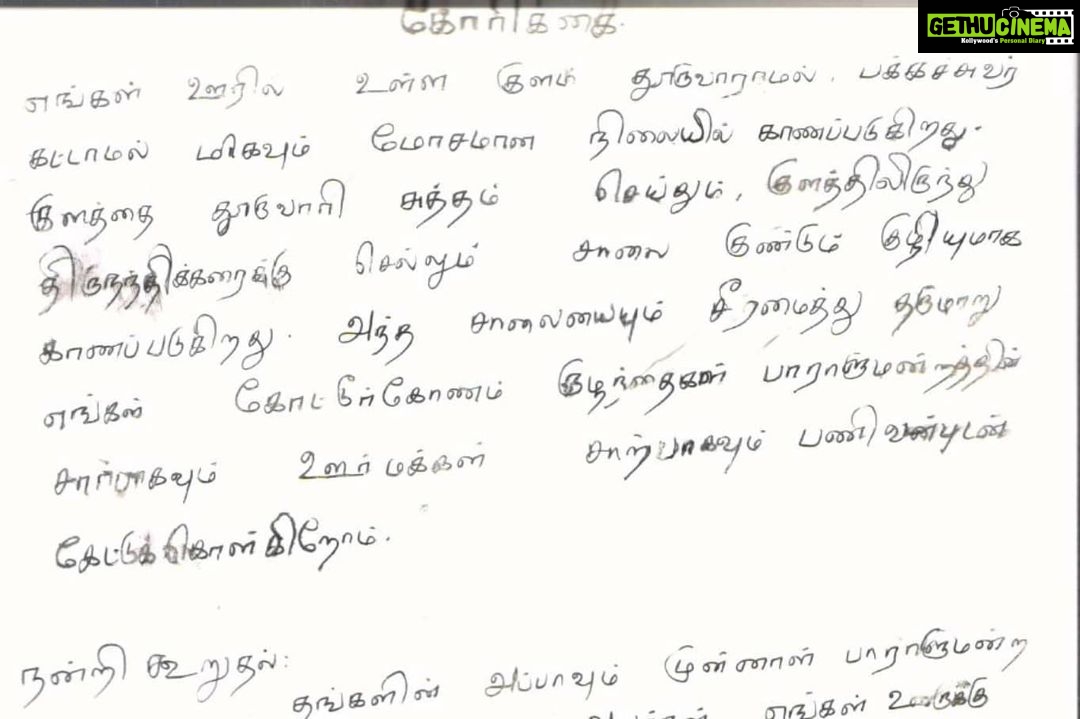 GETHUCINEMA
Kollywood's Personal Diary
கோரிக்கை.
எங்கள் ஊரில் உள்ள குளம் தூர்வாராமல், பக்கச்சுவர்
கட்டாமல் மிகவும் மோசமான நிலையில் காணப்படுகிறது.
குளத்தை தூர்வாரி சுத்தம் செய்தும், குளத்திலிருந்து
திருநந்திக்கரைக்கு செல்லும் சாலை குண்டும் குழியுமாக
காணப்படுகிறது. அந்த சாலையையும் சீரமைத்து தருமாறு
எங்கள் கோட்டூர்கோணம் குழந்தைகள் பாராளுமன்றத்தின்
சார்பாகவும் ஊர் மக்கள் சார்பாகவும் பணிவன்புடன்
கேட்டுக்கொள்கிறோம்.
நன்றி கூறுதல்:
தங்களின் அப்பாவும் முன்னாள் பாராளுமன்ற
எங்கள் ஊருக்கு